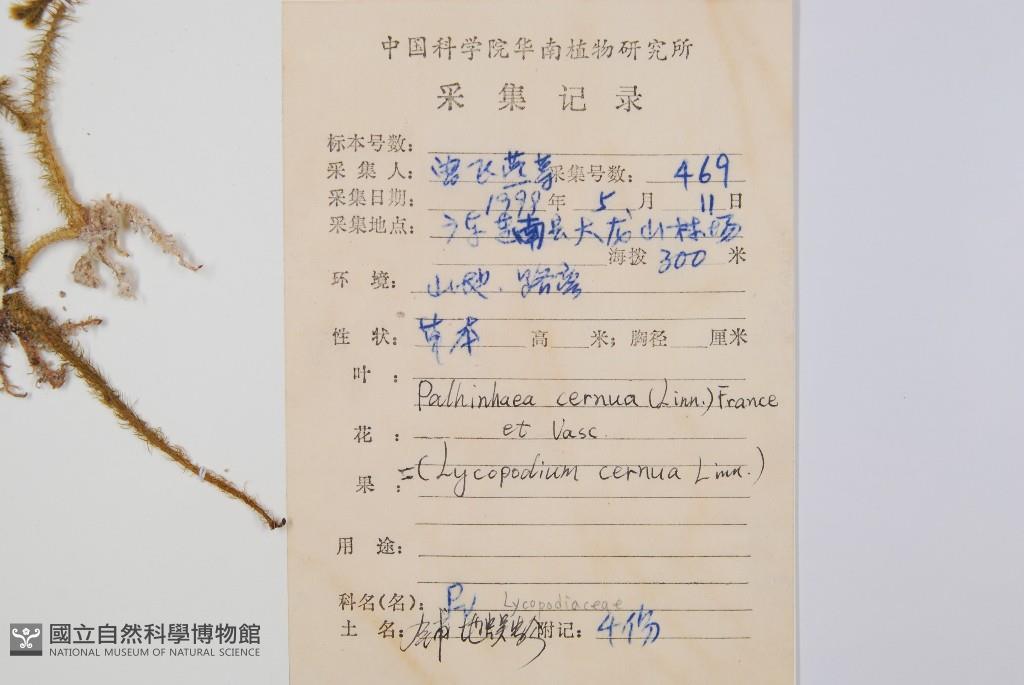 中国科学院华南植物研究所
采集记录
标本号数：
采集人：曾飞燕等 采集号数：469
采集日期：1999年5月11日
采集地点：广东连南县大龙山林场
海拨300米
环境：山地．路旁
性状：草本 高 米；胸径 厘米
叶：
Palhinhaea cernua (Linn.) France
花： et Vasc.
=(Lycopodium cernua Linn.)
果：
用途：
科名(名)： Lycopodiaceae
土名：铺地蜈蚣 附记：4份
國立自然科學博物館
NATIONAL MUSEUM OF NATURAL SCIENCE